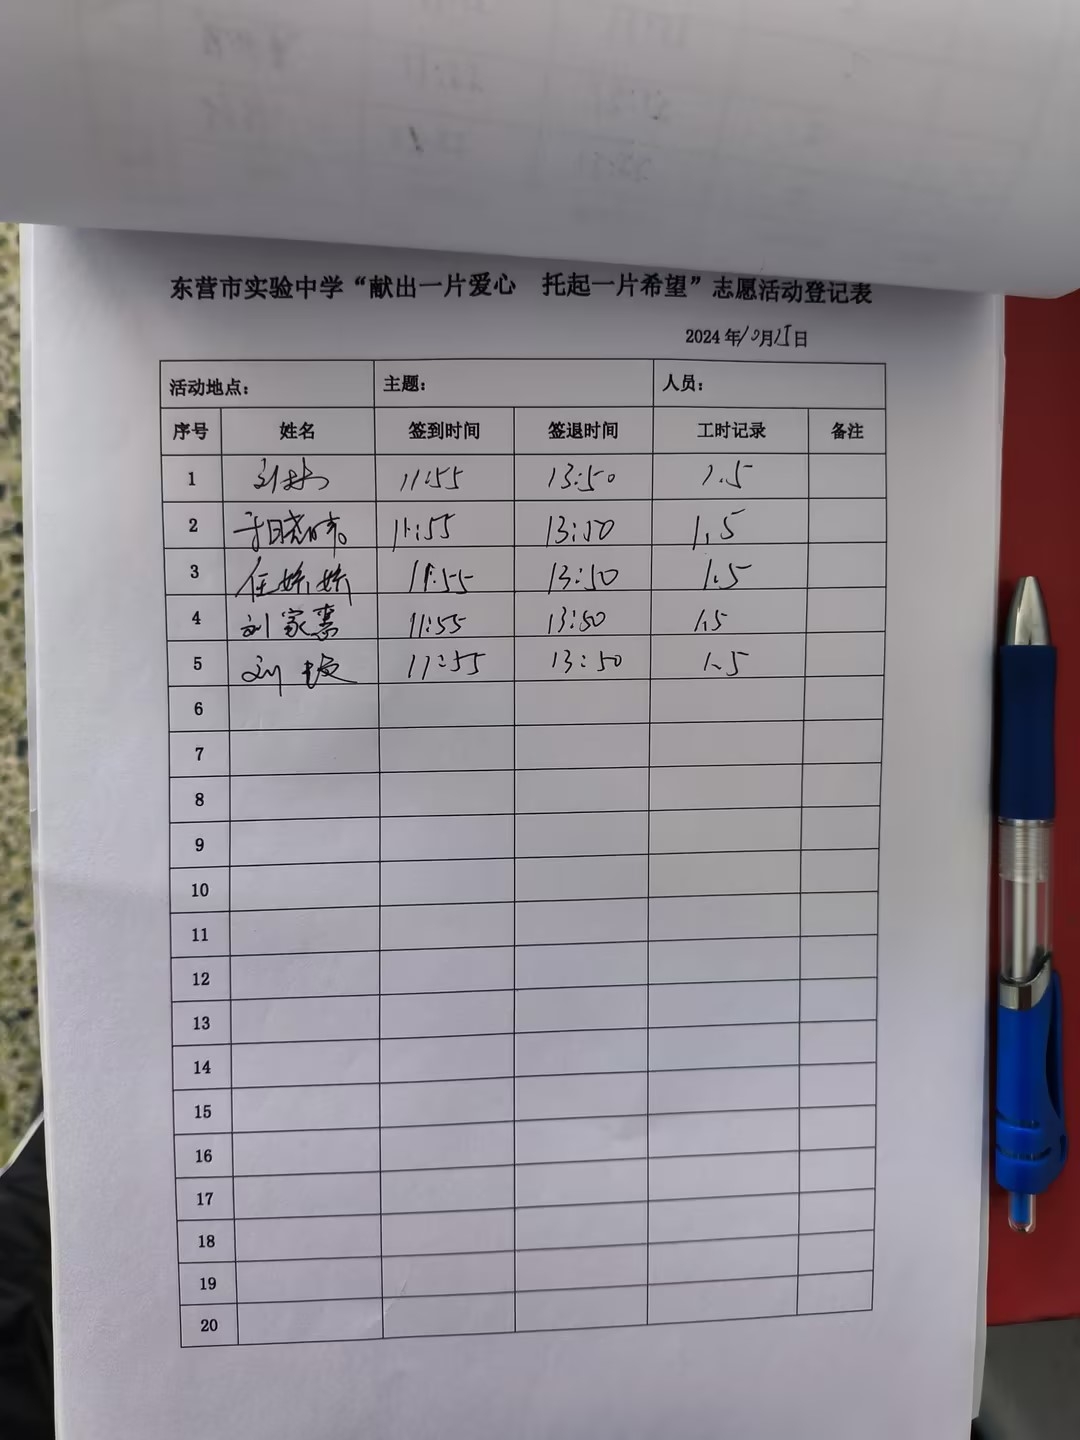 东营市实验中学“献出一片爱心 托起一片希望”志愿活动登记表
2024年10月15日
活动地点: 主题: 人员:
序号 姓名 签到时间 签退时间 工时记录 备注
1 11:55 13:50 1.5
2 于晓 11:55 13:50 1.5
3 任娇娇 11:55 13:50 1.5
4 刘家 11:55 13:50 1.5
5 刘 11:55 13:50 1.5
6
7
8
9
10
11
12
13
14
15
16
17
18
19
20